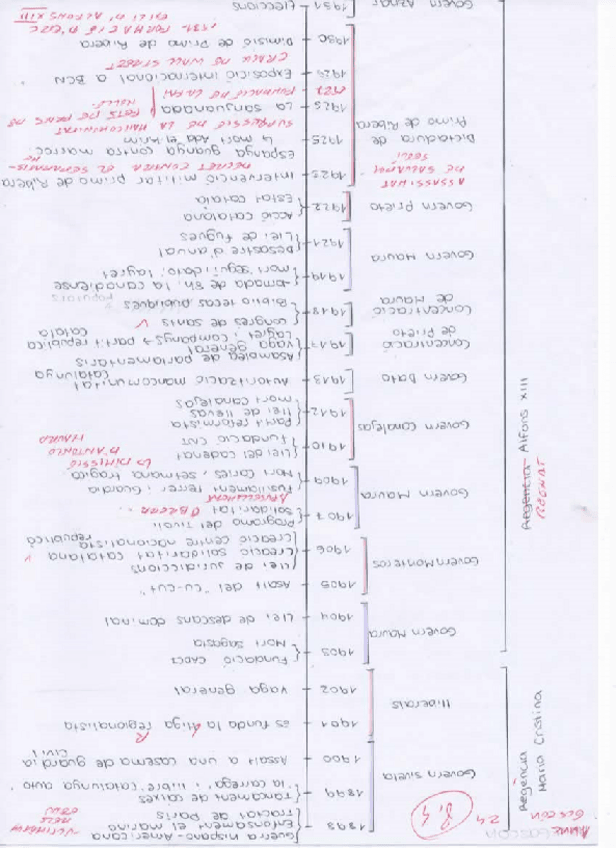 Anne Gascon
24
8,4
Regència Maria Cristina
GASCON
Govern Silvela
1898
Guerra Hispano-Americana
Enfonsament el marina
Tractat de París
1899
Tancament de caixes
"la carrega" i llibre "catalunya
1900
Assalt a una caserna de guardia
civil
lliberals
1901
es funda la lliga regionalista
R
1902
Vaga general
Regencia Alfons XIII
REGNAT
Govern Maura
1903
Fundació CADCI
Mort Sagasta
1904
Llei de descans dominal
Govern Monteros
1905
Asalt del "cu-cut"
1906
llei de jurisdiccions
Creació solidaritat catalana
Creació centre nacionalista
republicà
Govern Maura
1907
Programa del Tívoli
Solidaritat OBRERA
1909
Afusellament Ferrer i Guardia
AFUSELLAMENT
Mort Cortés, setmana tragica
LA DIMISSIÓ
D'ANTONIO
MAURA
Govern Canalejas
1910
Llei del cadenat
Fundació CNT
1912
Partit reformista
llei de lleves
mort canalejas
Govern Dato
1913
Autorització mancomunitat
catalunya
Concentració
de Prieto
1917
Asamblea de parlamentaris
vaga general
Layret i companys → partit republicà
català
Concentració
de Maura
1918
congres de sants
Biblioteques publiques
populars
Govern Maura
1919
Jornada de 8h, la canadiense
mort "seguí
layret
1921
Desastre d'anual
Llei de fugues
Govern Prieto
1922
Acció catalana
Estat català
ASSASSINAT
DE SALVADOR
SEGUÍ
Dictadura de
Primo de Ribera
1923
Intervenció militar primo de Ribera
DECRET CONTRA EL SEPARATIS-
ME
1925
Espanya guanya contra marroc
SUPRESSIÓ DE LA MANCOMUNITAT
La sanjuanada
FETS DE PRATS DE
MOLLÓ
1927
FUNDACIÓ DE LA FAI
1929
Exposició internacional a BCN
CRACK DE WALL STREET
1930
Dimisió de Primo de Ribera
1931 FORMACIÓ D'ERC
EXILI D'ALFONS XIII
Govern Aznar
1931
Eleccions